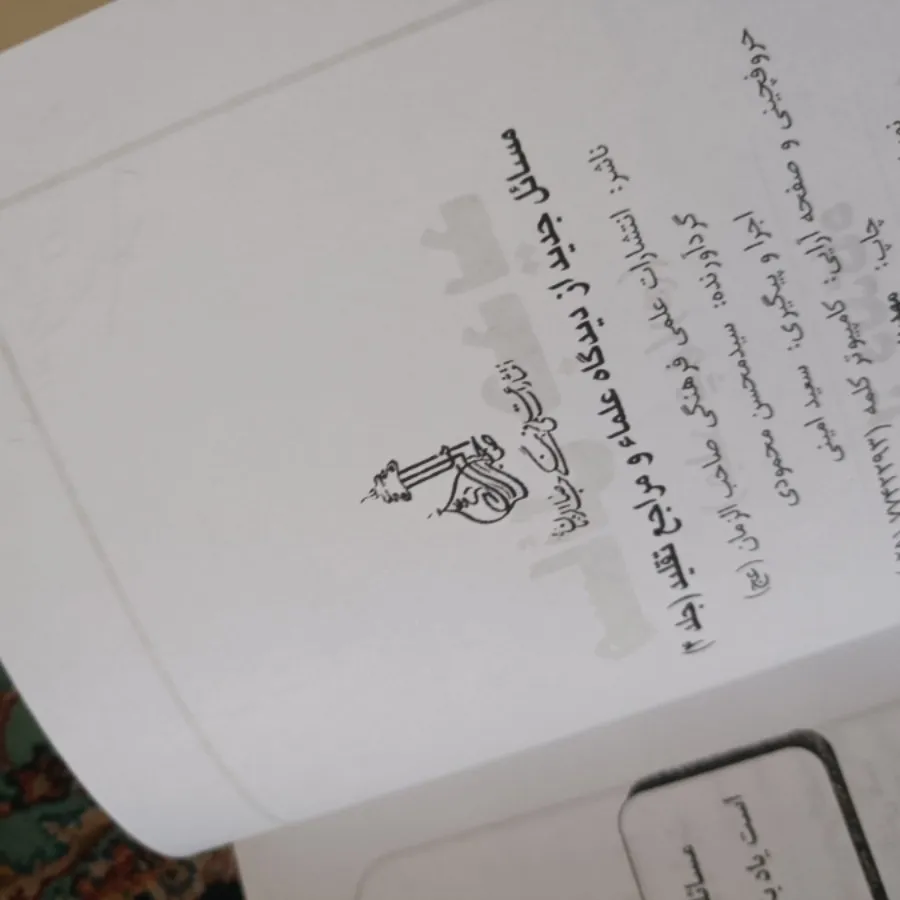 انتشارات علمی فرهنگی صاحب الزمان
مسائل جدید از دیدگاه علماء و مراجع تقلید (جلد ۴)
ناشر: انتشارات علمی فرهنگی صاحب الزمان (عج)
گردآورنده: سیدمحسن محمودی
اجرا و پیگیری: سعید امینی
حروفچینی و صفحه آرایی: کامپیوتر کلمه
چاپ:
است یاد